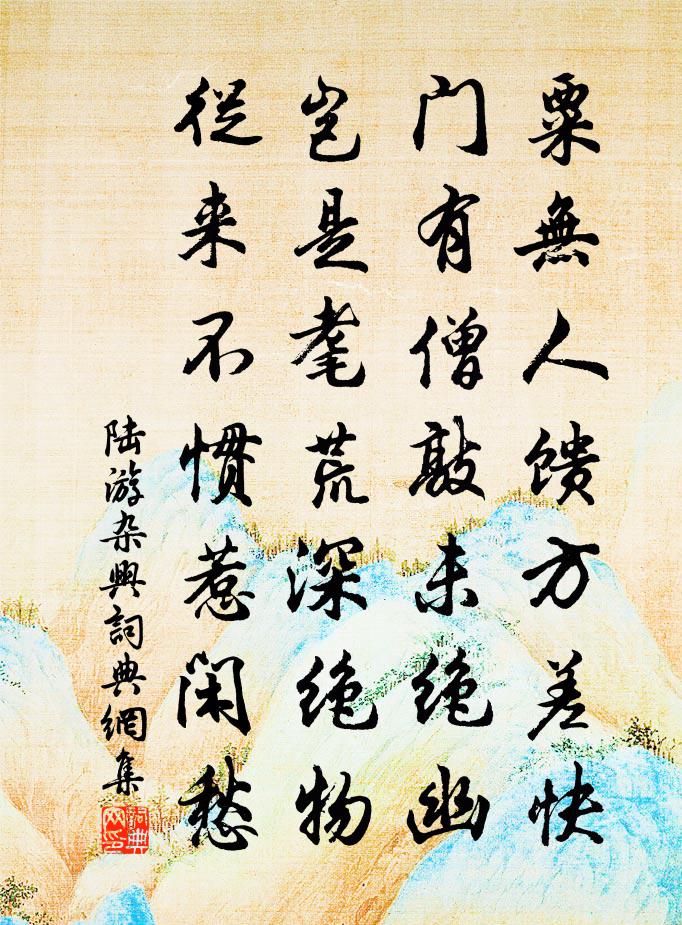 粟無人馈方差快
門有僧敲未绝幽
岂是耄荒深绝物
從来不惯惹闲愁
陆游杂興詞典網集
詞典网印